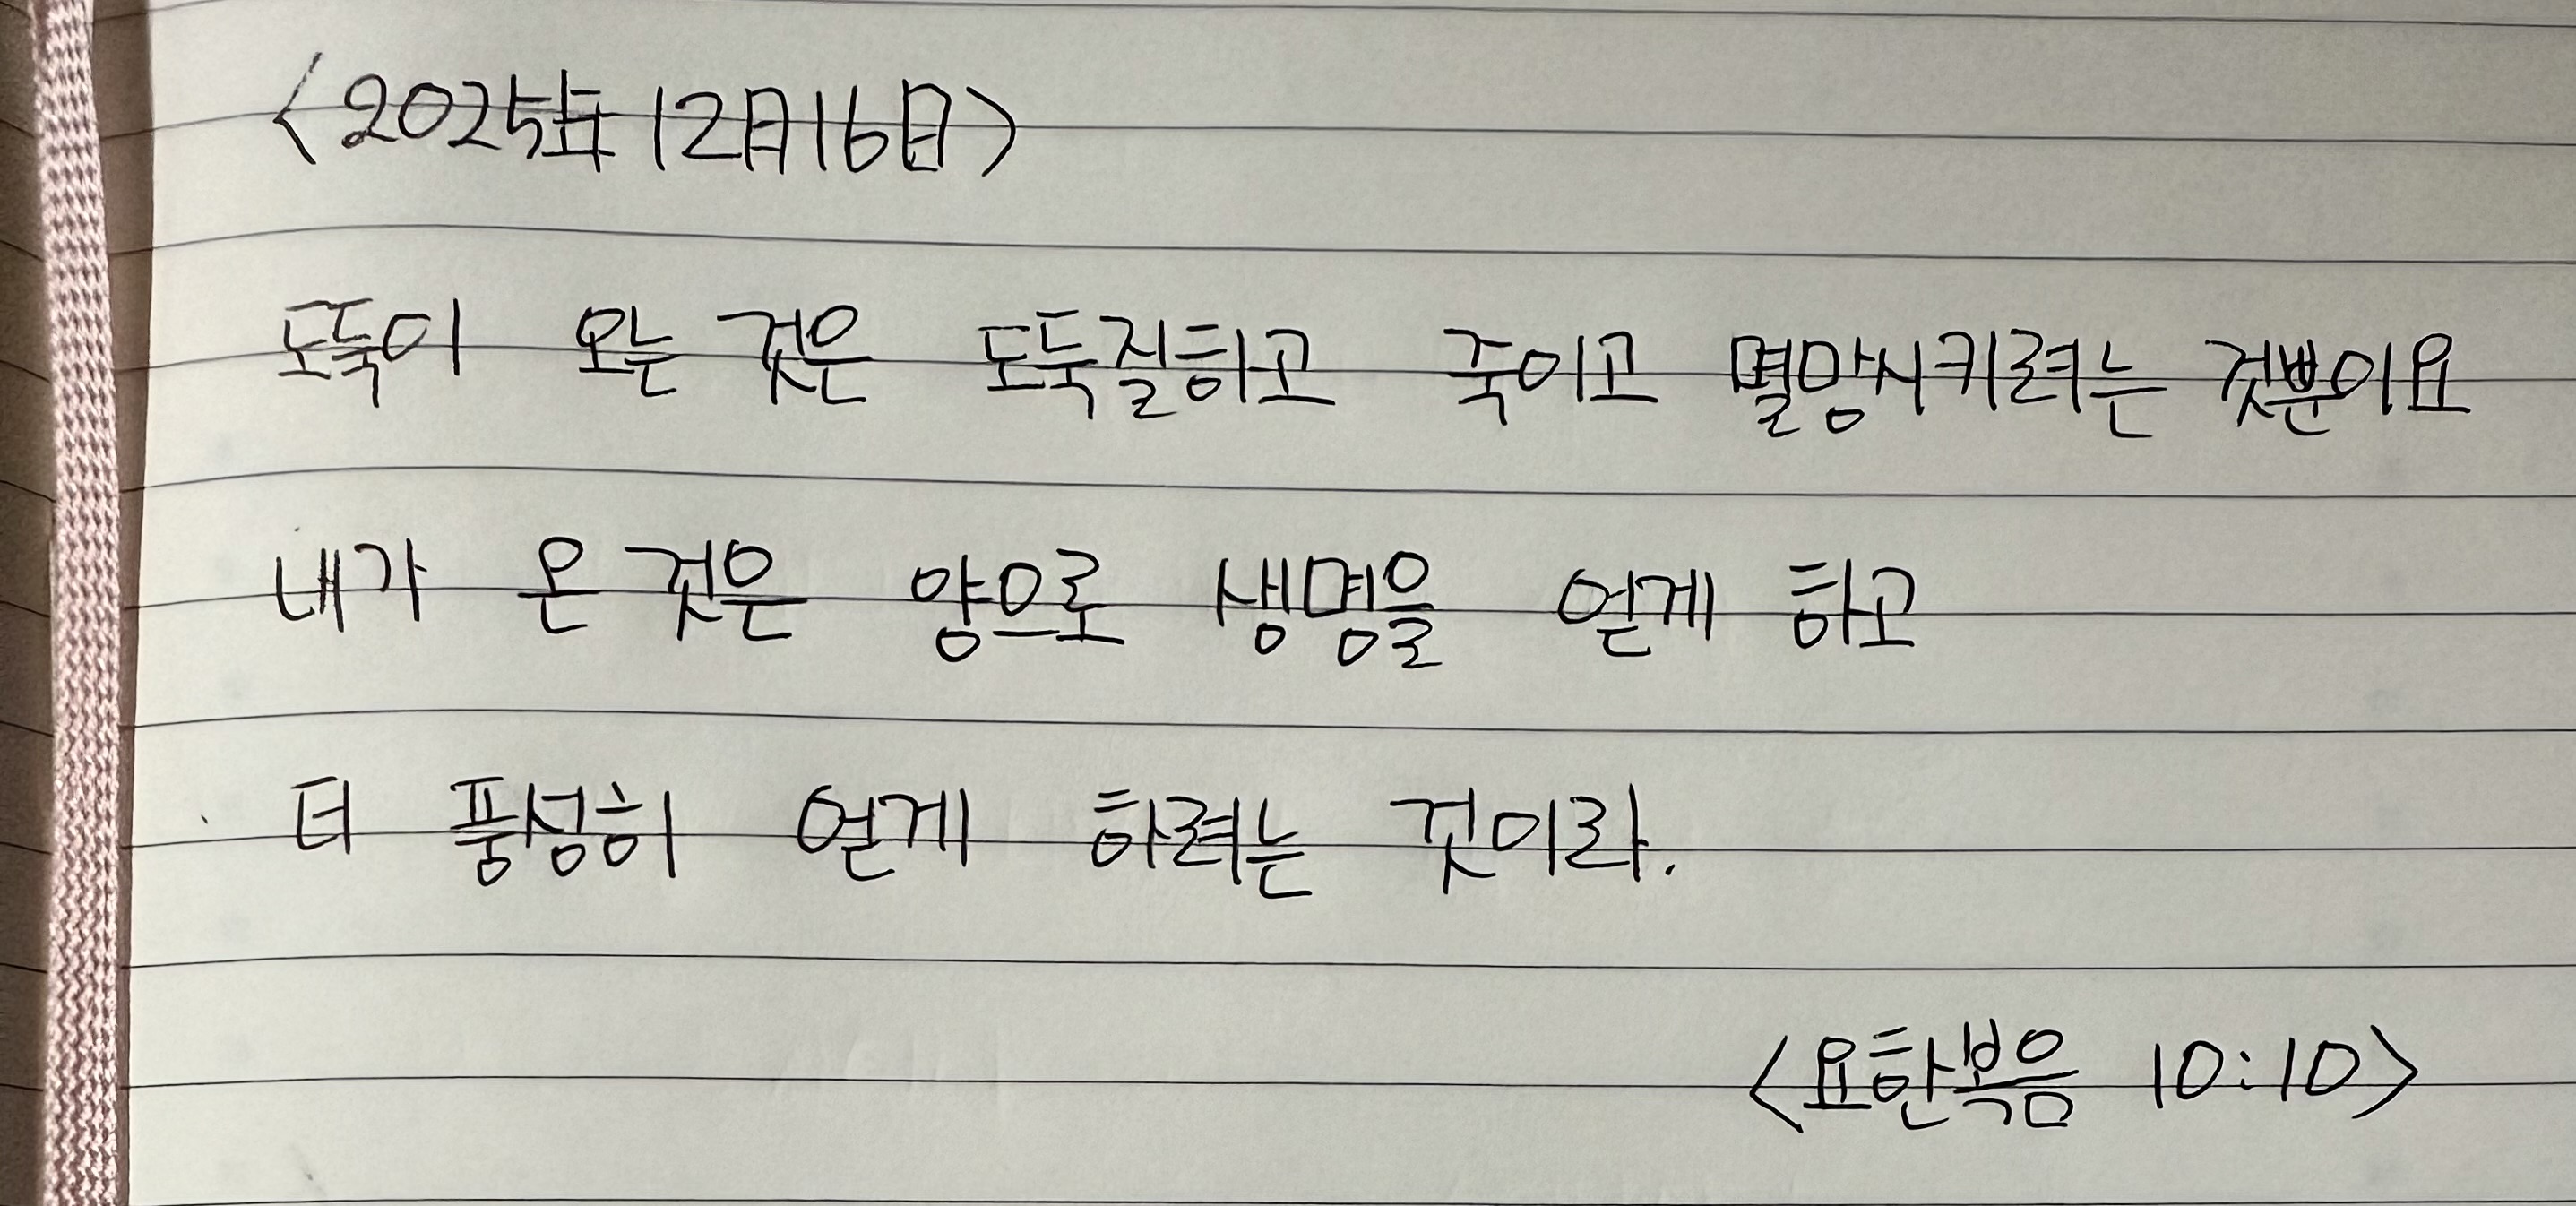 <2025年 12月16日>
도둑이 오는 것은 도둑질하고 죽이고 멸망시키려는 것뿐이요
내가 온 것은 양으로 생명을 얻게 하고
더 풍성히 얻게 하려는 것이라.
<요한복음 10:10>